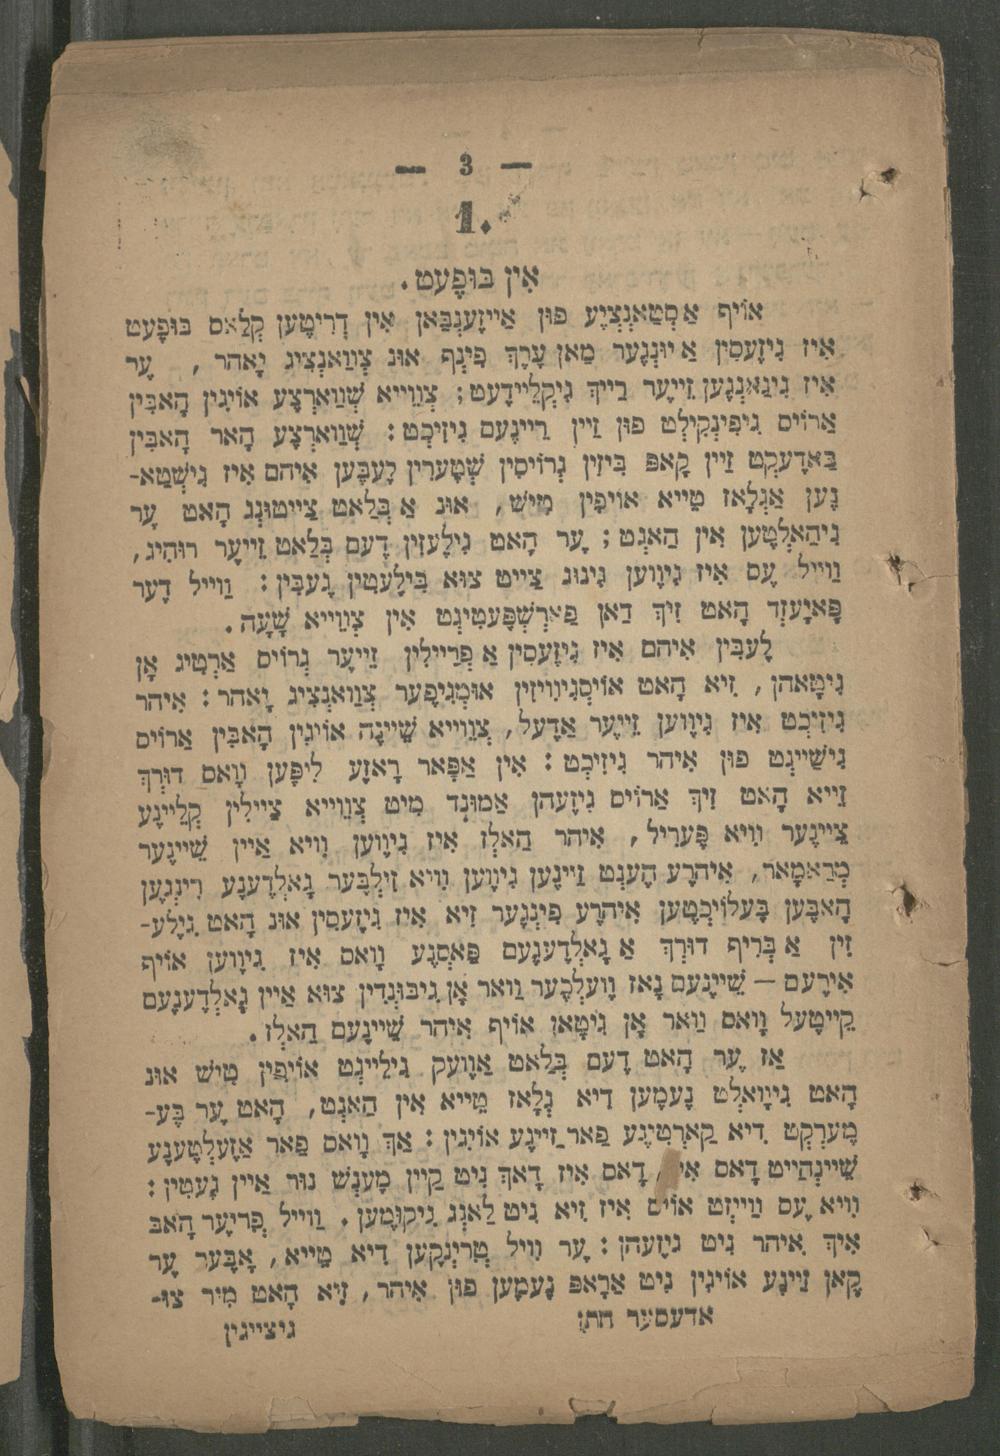 — 3 —
1.
אִין בּוּפֶעט.
אוֹיף אַסְטַאנְצִיֶע פוּן אַייזֶענְבַּאן אִין דְרִיטֶען קְלַאס בּוּפֶעט
אִיז גִיזֶעסִין אַ יוּנְגֶער מַאן עֶרֶךְ פִינְף אוּנ צְוַואנְצִיג יָאהר, עֶר
אִיז גִיגַאנְגֶען זֵייעֶר רֵייךְ גִיקְלֵיידֶעט; צְוֵוייא שְׁוַוארְצֶע אוֹיגִין הָאבִּין
אַרוֹיס גִיפִינְקִילְט פוּן זַיין רֵיינֶעם גִיזִיכְט: שְׁוַוארְצֶע הָאר הָאבִּין
בַּאדֶעקְט זַיין קָאפּ בִּיזִין גְרוֹיסִין שְׁטֶערִין לֶעבֶּען אִיהם אִיז גִישְׁטַא-
נֶען אַגְלָאז טֵייא אוֹיפִין טִישׁ, אוּנ אַ בְּלַאט צַייטוּנְג הָאט עֶר
גִיהַאלְטֶען אִין הַאנְט; עֶר הָאט גִילֶעזִין דֶעם בְּלַאט זֵייעֶר רוּהִיג,
וַוייל עֶס אִיז גִיוֶוען גִינוּג צַייט צוּא בִּילֶעטִין גֶעבִּין: וַוייל דֶער
פָּאיֶעזְד הָאט זִיךְ דַאן פַארְשְׁפֶּעטִיגְט אִין צְוֵוייא שָׁעָה.
לֶעבִּין אִיהם אִיז גִיזֶעסִין אַ פְרֵיילִין זֵייעֶר גְרוֹיס אַרְטִיג אָן
גִיטָאהן, זִיא הָאט אוֹיסְגִיוִויזִין אוּמְגִיפֶער צְוַואנְצִיג יָאהר: אִיהר
גִיזִיכְט אִיז גִיוֶוען זֵייעֶר אֵדֶעל, צְוֵוייא שֵׁיינֶה אוֹיגִין הָאבִּין אַרוֹיס
גִישַׁיינְט פוּן אִיהר גִיזִיכְט: אִין אַפָּאר רָאזֶע לִיפֶּען וָואס דוּרְךְ
זֵייא הָאט זִיךְ אַרוֹיס גִיזֶעהן אַמוּנְד מִיט צְוֵוייא צֵיילִין קְלֵיינֶע
צֵיינֶער וִויא פֶּערִיל, אִיהר הַאלְז אִיז גִיוֶוען וִויא אַיין שֵׁיינֶער
מְרַאמָאר, אִיהרֶע הֶענְט זַיינֶען גִיוֶוען וִויא זִילְבֶּער גָאלְדֶענֶע רִינְגֶען
הָאבֶּען בֶּעלוֹיכְטֶען אִיהרֶע פִינְגֶער זִיא אִיז גִיזֶעסִין אוּנ הָאט גִילֶע-
זִין אַ בְּרִיף דוּרְךְ אַ גָאלְדֶענֶעם פַּאסְנֶע וָואס אִיז גִיוֶוען אוֹיף
אִירֶעם — שֵׁיינֶעם נָאז וֶועלְכֶער וַואר אָן גִיבּוּנְדִין צוּא אַיין גָאלְדֶענֶעם
קֵייטֶעל וָואס וַואר אָן גִיטָאן אוֹיף אִיהר שֵׁיינֶעם הַאלְז.
אַז עֶר הָאט דֶעם בְּלַאט אַוֶועק גִילֵייגְט אוֹיפִין טִישׁ אוּנ
הָאט גִיוָואלְט נֶעמֶען דִיא גְלָאז טֵייא אִין הַאנְט, הָאט עֶר בֶּע-
מֶערְקְט דִיא קַארְטִינֶע פַאר זַיינֶע אוֹיגִין: אַךְ וָואס פַאר אַזֶעלְטֶענֶע
שֵׁיינְהַייט דָאס אִיז, דָאס אִיז דָאךְ נִיט קַיין מֶענְשׁ נוּר אַיין גֶעטִין:
וִויא עֶס וַוייזְט אוֹיס אִיז זִיא נִיט לַאנְג גִיקוּמֶען. וַוייל פְרִיעֶר הָאבּ
אִיךְ אִיהר נִיט גִיזֶעהן: עֶר וִויל טְרִינְקֶען דִיא טֵייא, אָבֶּער עֶר
קָאן זַיינֶע אוֹיגִין נִיט אַרָאפּ נֶעמֶען פוּן אִיהר, זִיא הָאט מִיר צוּ-
אדעסער חתן גיצייגין